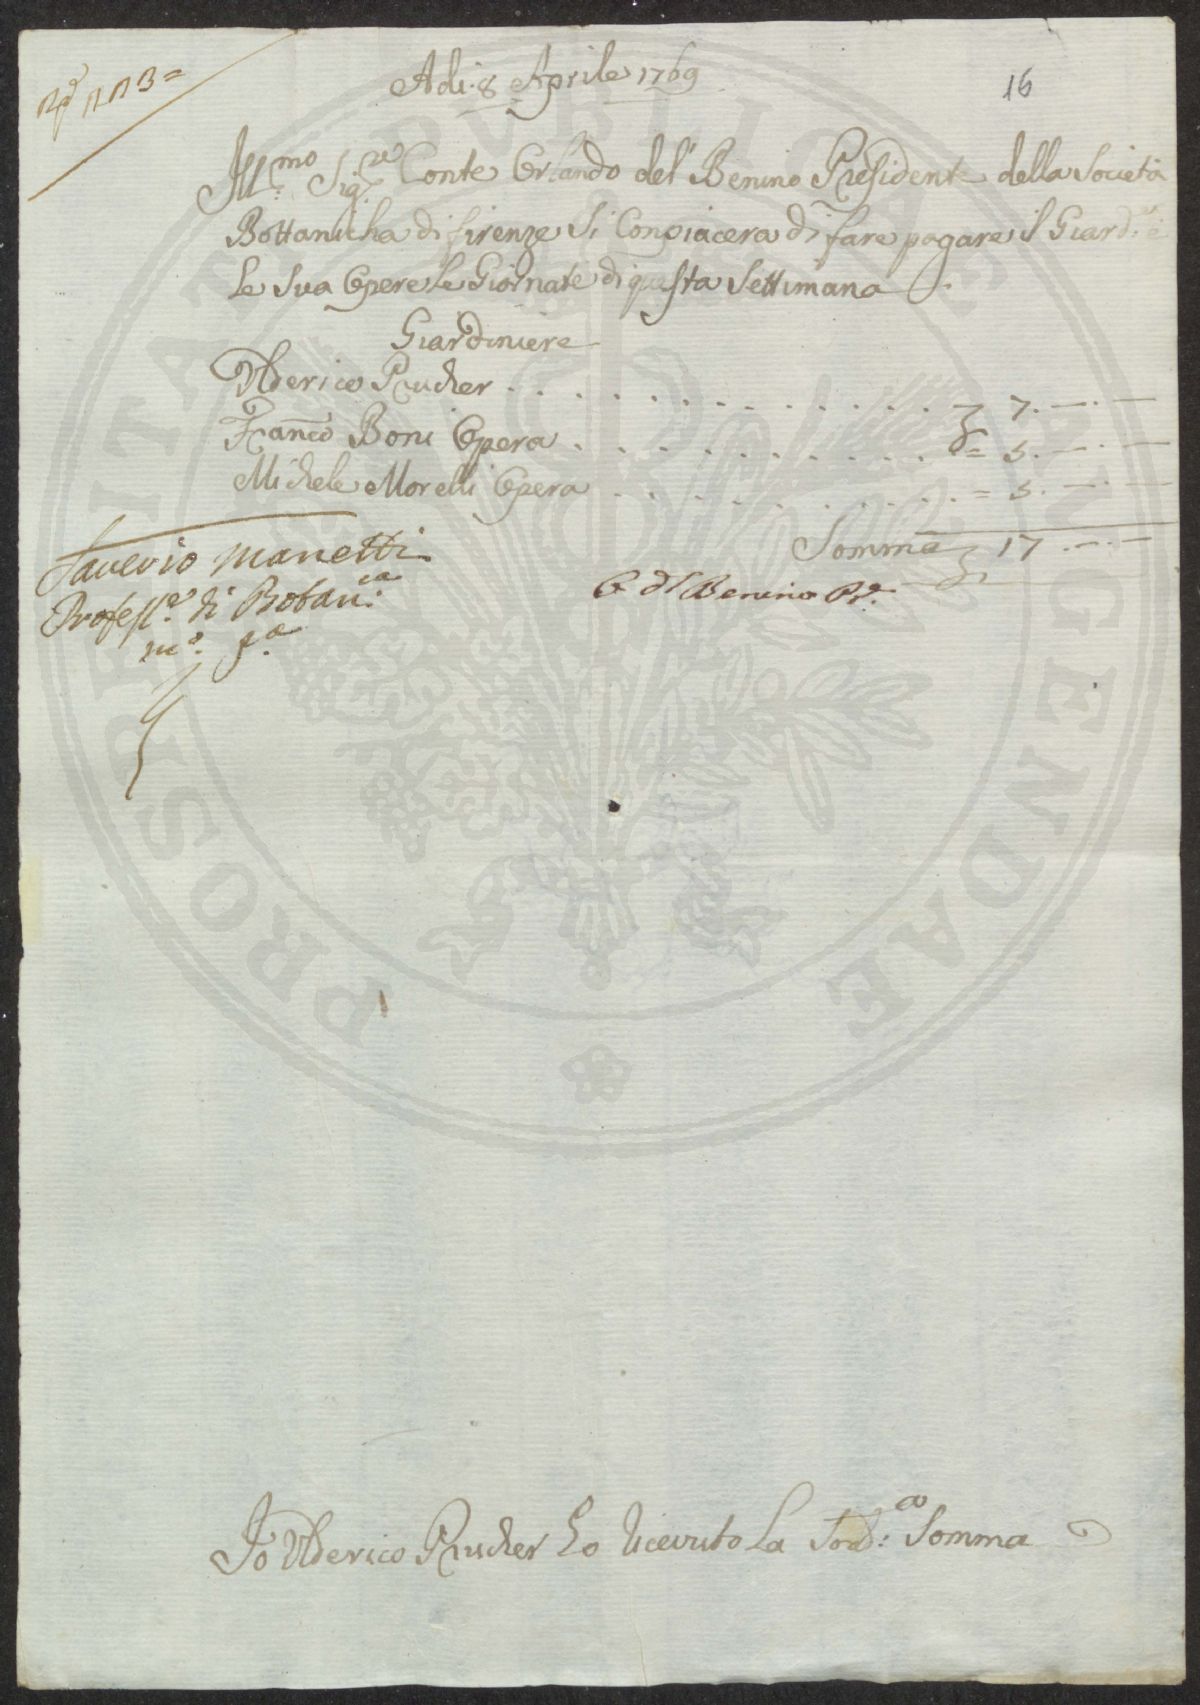 16
Adi 8 Aprile 1769
Ill.mo Sig.re Conte Orlando del Benino Presidente della Società
Bottanicha di firenze Si Conpiacera di fare pagare il Giard.e e
Le Sua Opere le Giornate di questa Settimana
Giardiniere
Ulderico Prucher . . . . . . . . . . . . . 7. — . —
Franco Boni Opera . . . . . . . . . = 5. — . —
Michele Morelli Opera . . . . . . . . = 5. — . —
Somma 17. — . —
Saverio Manetti
Profess.e di Botan.ca
m.o p.a
O del Benino Pr.e
Io Ulderico Prucher ho ricevuto La Sod.a Somma
PROSPERITATI PUBLICAE AUGENDAE